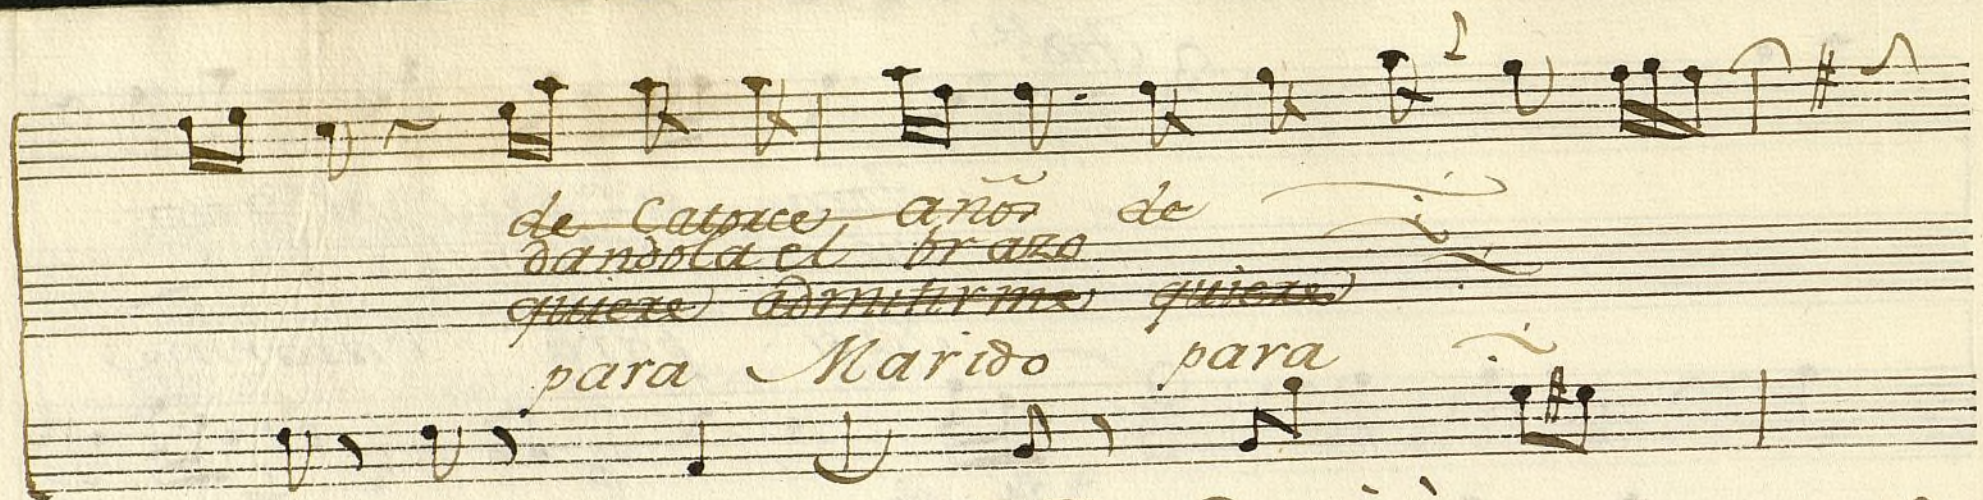 de Catorce años de
dandola el brazo
quiere admitirme quiere
para Marido para